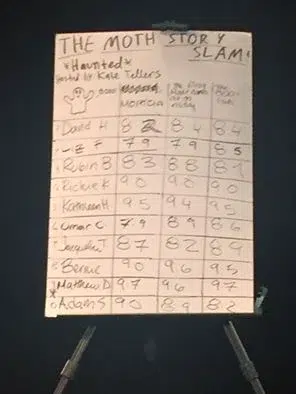 THE MOTH STORY SLAM
*Haunted*
Hosted by Kate Tellers
BOO! MORTICIA The First on Friday The
David H 82 84 84
Liz F 79 79 85
Rubin B 83 88 81
Richie K 90 90 90
Kathleen H 95 94 95
Omar C 79 89 86
Jacqulin T 87 82 89
Bernie 90 96 95
Matthew D 97 96 97
Adam S 90 89 82